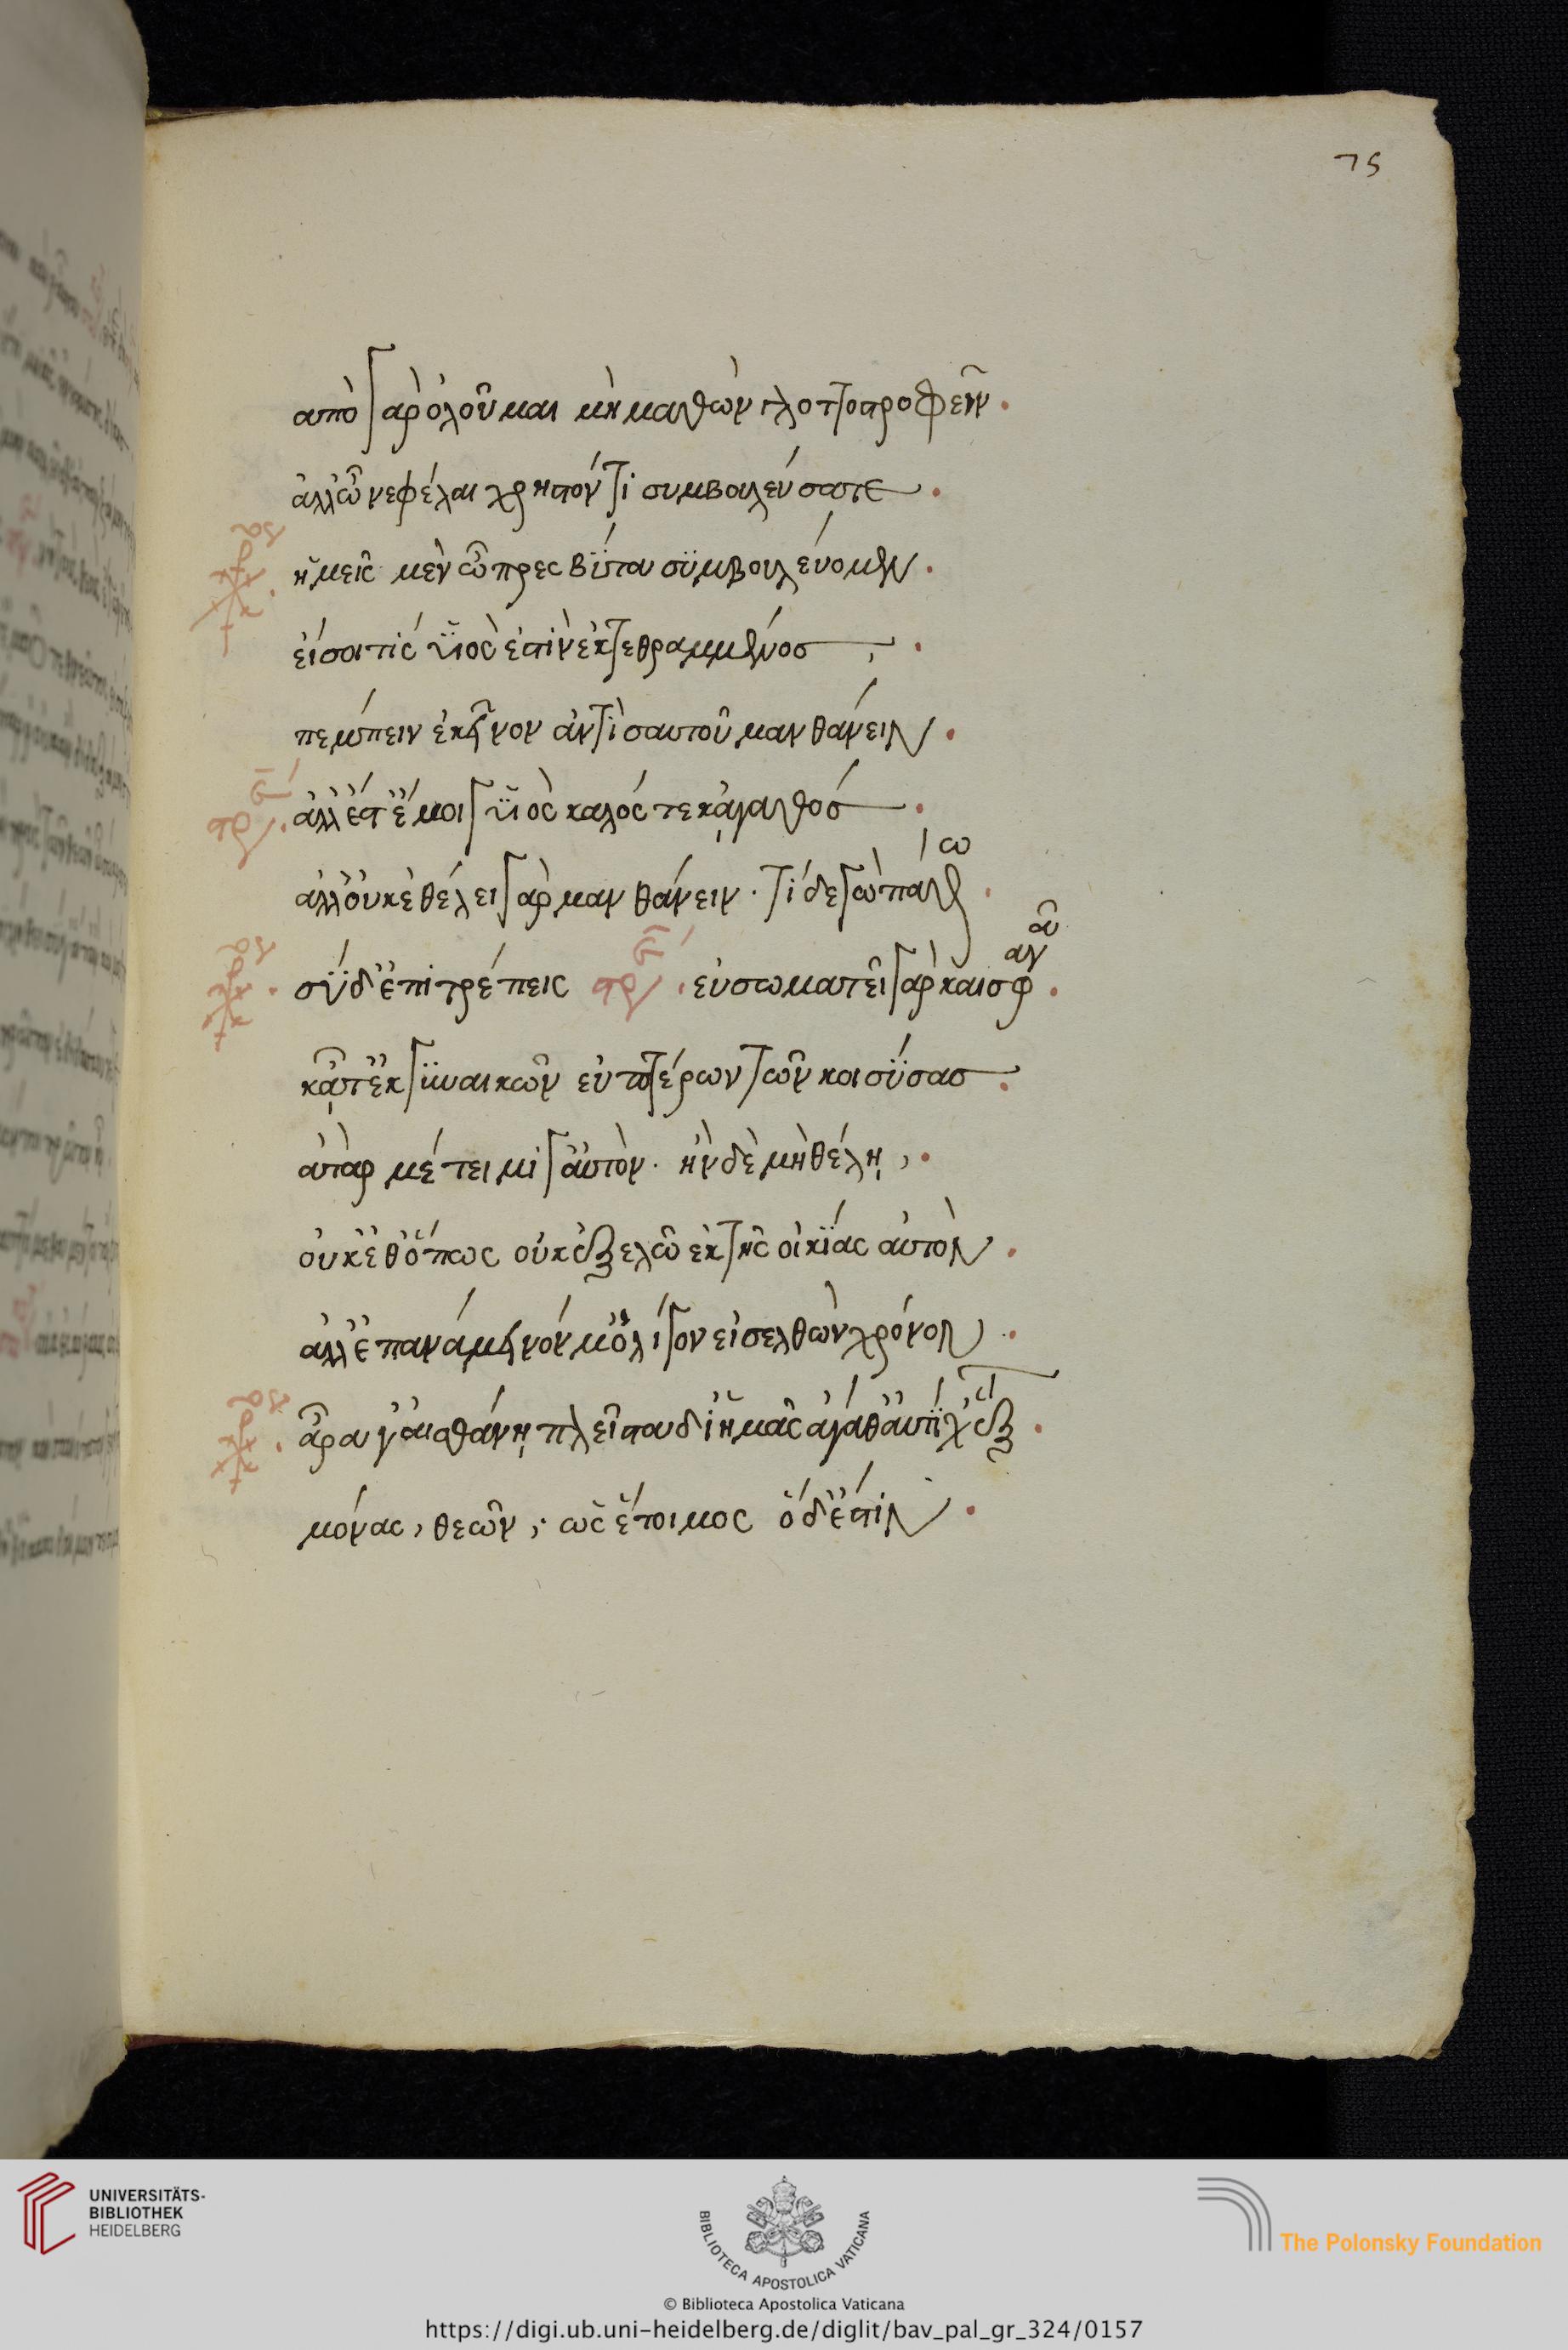 75
ἀπὸ γὰρ ὀλοῦμαι μὴ μαθὼν γλοττοστροφεῖν.
ἀλλ' ὦ νεφέλαι χρηστόν τι συμβουλεύσατε.
χορ ἡμεῖς μὲν ὦ πρεσβῦτα συμβουλεύομεν.
εἴ σοί τις υἱὸς ἐστὶν ἐκτεθραμμένος,.
πέμπειν ἐκεῖνον ἀντὶ σαυτοῦ μανθάνειν.
στρ. ἀλλ' ἔστ' ἔμοιγ' υἱὸς καλός τε κἀγαθός.
ἀλλ' οὐκ ἐθέλει γὰρ μανθάνειν. τί δ' ἐγὼ πάθω.
χορ. σὺ δ' ἐπιτρέπεις στρ. εὐσωματεῖ γὰρ καὶ σφριγᾷ.
κἄστ' ἐκ γυναικῶν εὐπτέρων τῶν κοισύρας.
ἀτὰρ μέτειμί γ' αὐτόν. ἢν δὲ μὴ θέλῃ,.
οὐκ ἔσθ' ὅπως οὐκ ἐξελῶ ἐκ τῆς οἰκίας αὐτόν.
ἀλλ' ἐπανάμεινόν μ' ὀλίγον εἰσελθὼν χρόνον.
χορ. ἆρ' αἰσθάνῃ πλεῖστα δι' ἡμᾶς ἀγάθ' αὐτίχ' ἕξων.
μόνας, θεῶν; ὡς ἕτοιμος ὅδ' ἐστὶν.
UNIVERSITÄTS-
BIBLIOTHEK
HEIDELBERG
BIBLIOTECA APOSTOLICA VATICANA
The Polonsky Foundation
© Biblioteca Apostolica Vaticana
https://digi.ub.uni-heidelberg.de/diglit/bav_pal_gr_324/0157